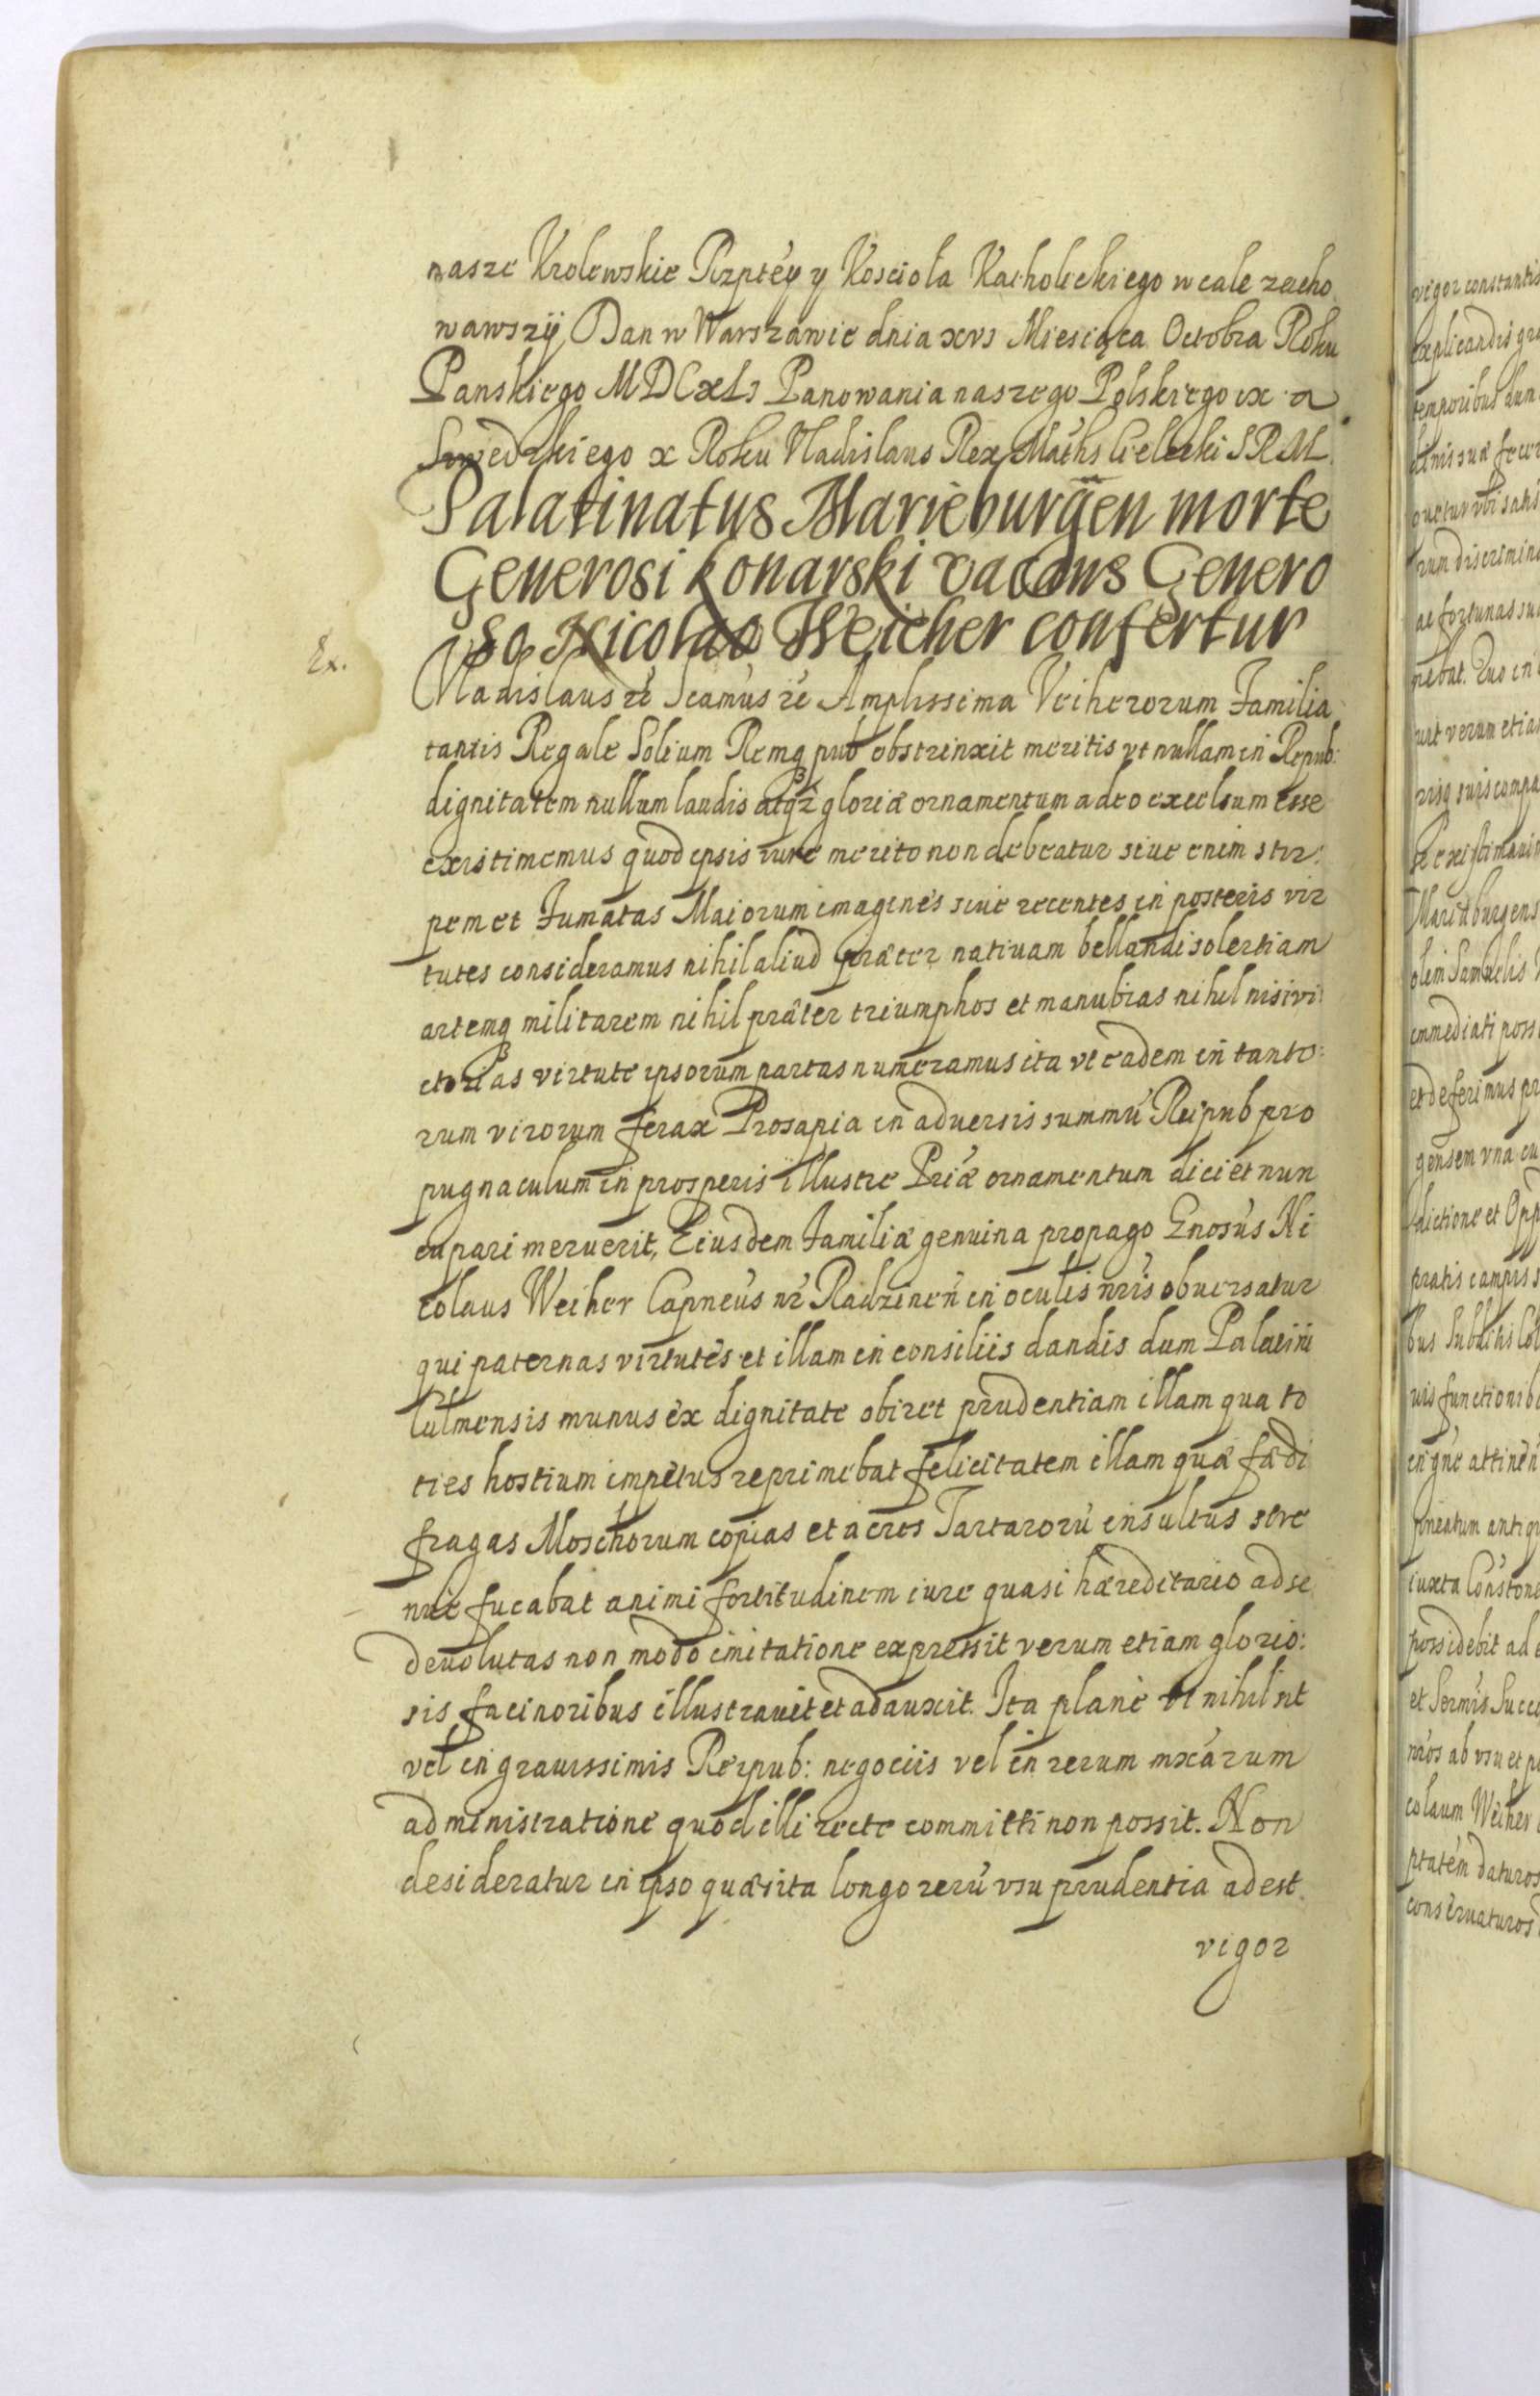 nasze Krolewskie Rzptéy y Kosciola Katholickiego w cale zacho
wawszÿ Dan w Warszawie dnia xvi Miesiąca Octobra Roku
Panskiego MDCxLi Panowania naszego Polskiego ix a
Szwedzkiego x Roku Vladislaus Rex Mathś Cielecki SRM
Palatinatus Marieburgen̄ morte
Generosi Konarski vacans Genero
so Nicolao Weicher confertur
Ex.
Vladislaus zć Scamús zć Amplissima Veiherorum Familia
tantis Regale Solium Remq pub obstrinxit meritis vt nullam in Repub:
dignitatem nullum laudis atqz gloriæ ornamentum adeo excelsum esse
existimemus quod ipsis iure merito non debeatur siue enim stir:
pem et Fumatas Maiorum imagines siue recentes in posteris vir
tutes consideramus nihil aliud præter natiuam bellandi solertiam
artemq militarem nihil præter triumphos et manubias nihil nisi vi
ctorias virtute ipsorum partas numeramus ita vt eadem in tanto:
rum virorum ferax Prosapia in aduersis summú Reipub pro
pugnaculum in prosperis illustre Príæ ornamentum dici et nun
cupari meruerit, Eiusdem Familiæ genuina propago Gnosús Ni
colaus Weiher Capneús nr̃ Radzineń in oculis nrĩs obuersatur
qui paternas virtutes et illam in consiliis dandis dum Palatini
Culmensis munus ex dignitate obiret prudentiam illam qua to
ties hostium impetus reprimebat felicitatem illam quæ fædi
fragas Moschorum copias et acres Tartarorú insultus stre
nue fucabat animi fortitudinem iure quasi hæreditario ad se
deuolutas non modo imitatione expressit verum etiam glorio:
sis facinoribus illustrauit et adauxit. Ita plane vt nihil sit
vel in grauissimis Reipub: negociis vel in rerum mxárum
administratione quod illi recte committi non possit. Non
desideratur in ipso quæsita longo rerú vsu prudentia adest
vigor